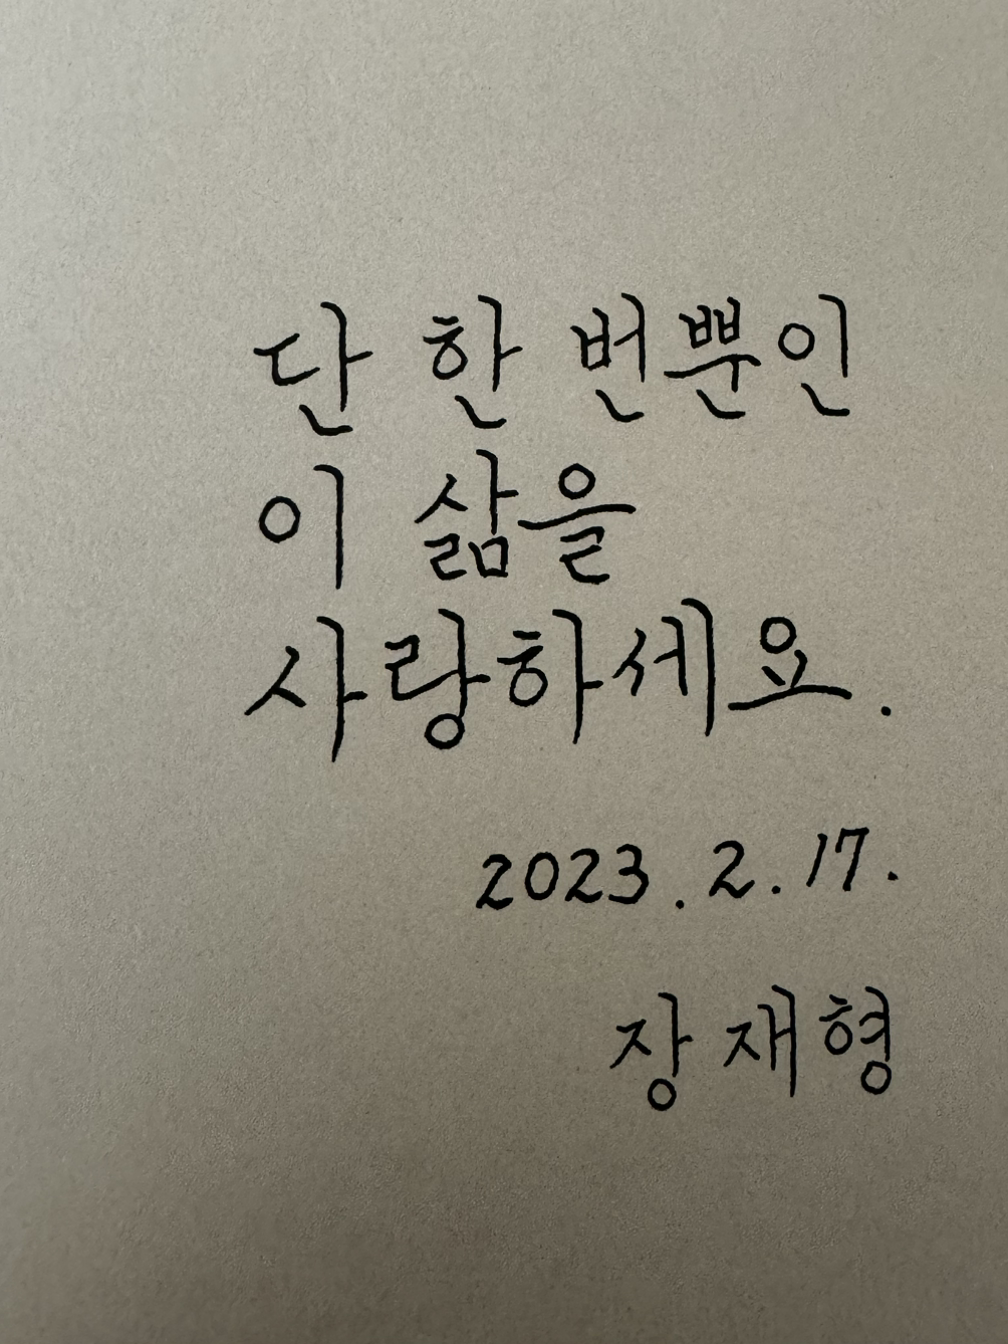 단 한 번뿐인
이 삶을
사랑하세요.
2023. 2. 17.
장 재 형